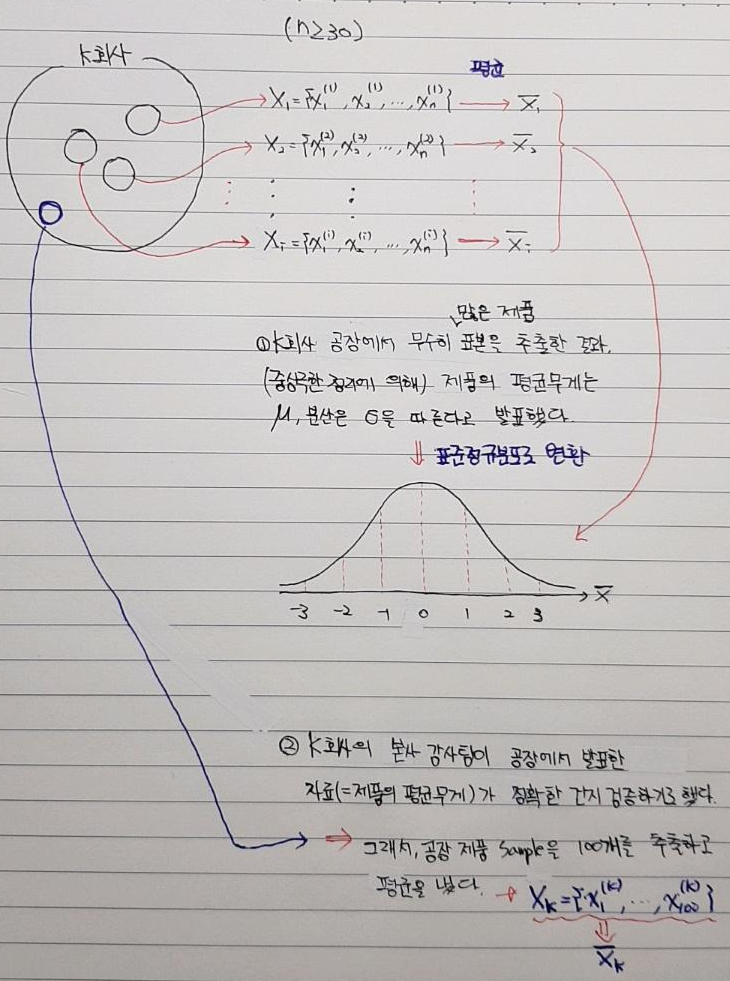 (n≥30)
K회사
평균
X₁ = {x₁⁽¹⁾, x₂⁽¹⁾, ..., xₙ⁽¹⁾} → X̅₁
X₂ = {x₁⁽²⁾, x₂⁽²⁾, ..., xₙ⁽²⁾} → X̅₂
Xᵢ = {x₁⁽ⁱ⁾, x₂⁽ⁱ⁾, ..., xₙ⁽ⁱ⁾} → X̅ᵢ
많은 제품
① K회사 공장에서 무수히 표본을 추출한 결과,
(중심극한 정리에 의해) 제품의 평균무게는
μ, 분산은 σ을 따른다고 발표했다.
⇓ 표준정규분포로 변환
-3 -2 -1 0 1 2 3 X̅
② K회사의 본사 감사팀이 공장에서 발표한
자료(=제품의 평균무게)가 정확한 건지 검증하기로 했다.
⇒ 그래서, 공장 제품 Sample을 100개를 추출하고
평균을 냈다. → Xₖ = {x₁⁽ᵏ⁾, ..., x₁₀₀⁽ᵏ⁾}
⇓
X̅ₖ